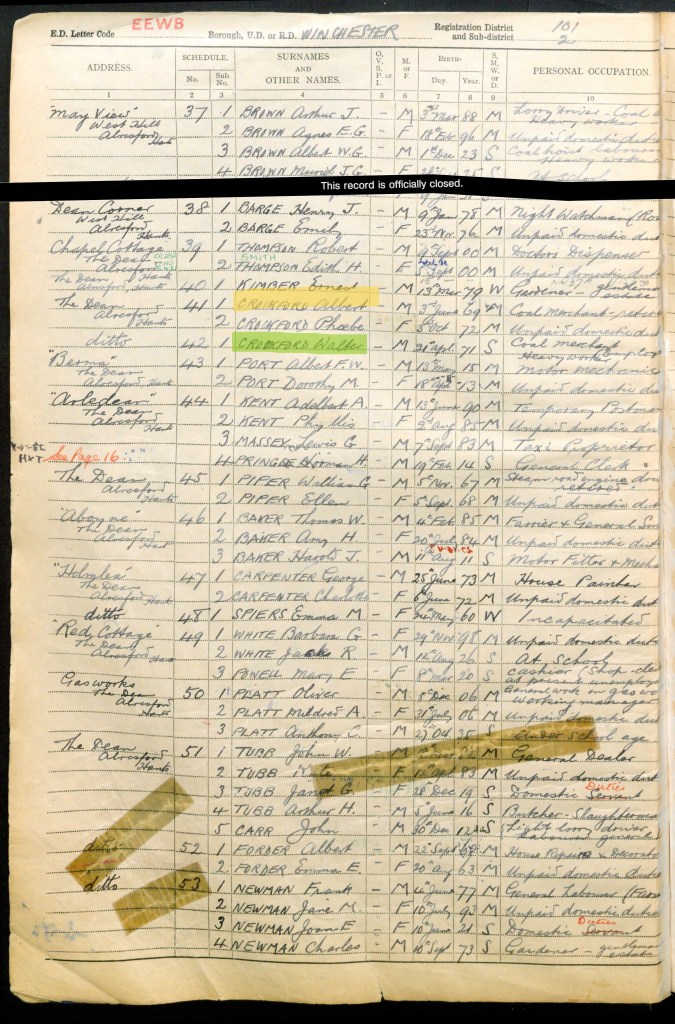 EEWB
E.D. Letter Code Borough, U.D. or R.D. WINCHESTER Registration District and Sub-district 101 2
ADDRESS. SCHEDULE. SURNAMES AND OTHER NAMES. O, V, S, P. or I. M. or F. BIRTH— S. M. W. or D. PERSONAL OCCUPATION.
No. Sub. No. Day. Year.
1 2 3 4 5 6 7 8 9 10
"May View" 37 1 BROWN Arthur J. – M 3rd Mar 88 M Lorry Driver - Coal
West Hill Heavy worker
Alresford 2 BROWN Agnes E.G. – F 18th Feb 96 M Unpaid domestic dut
Hants 3 BROWN Albert W.G – M 1st Dec 23 S Coalhoist labourer
Heavy worker
4 BROWN Muriel J.G. F At School
This record is officially closed.
Dean Corner 38 1 BARGE Henry J. – M 9th Jan 78 M Night Watchman
West Hill
Alresford 2 BARGE Emily – F 23rd Nov. 76 M Unpaid domestic dut
Hants
Chapel Cottage 39 1 THOMPSON Robert – M Sept 00 M Doctors Dispenser
The Dean SMITH
Alresford 2 THOMPSON Edith H. – F Sept 00 M Unpaid domestic dut
Hants
The Dean 40 1 KIMBER Ernest – M 13th Mar 79 W Gardener - gentlemans
Alresford, Hants
The Dean 41 1 CROOKFORD Albert – M 3rd June 69 M Coal Merchant - retire
Alresford
Hants 2 CROOKFORD Phoebe – F 5th Oct 72 M Unpaid domestic dut
ditto 42 1 CROOKFORD Walter – M 21st Apl. 71 S Coal merchant
Heavy worker
"Berma" 43 1 PORT Albert F.W. – M 13th May 15 M Motor mechanic
The Dean
Alresford, Hants 2 PORT Dorothy M. – F 18th Apl 13 M Unpaid domestic dut
"Arledean" 44 1 KENT Adelbert A. – M 13th June 90 M Temporary Postman
The Dean
Alresford 2 KENT Phyllis – F 2nd Aug 85 M Unpaid domestic dut
Hants
3 MASSEY Lewis G – M 7th Sept 83 M Taxi Proprietor
See Page 16 4 PRINGLE Norman H. – M 19th Feb 14 S General Clerk
The Dean 45 1 PIPER William G – M 5th Nov. 67 M Steam road engine
Alresford retired
Hants 2 PIPER Ellen – F 5th Sept. 68 M Unpaid domestic dut
"Aboyne" 46 1 BAKER Thomas W. – M 4th Feb 85 M Farrier & General
The Dean
Alresford 2 BAKER Amy H. – F 20th July 84 M Unpaid domestic dut
Hants
3 BAKER Harold J. – M 11th Aug 11 S Motor Fitter & Mecha
"Holmlea" 47 1 CARPENTER George – M 25th June 73 M House Painter
The Dean
Alresford Hants 2 CARPENTER Charlotte – F 6th June 72 M Unpaid domestic dut
ditto 48 1 SPIERS Emma M – F May 60 W Incapacitated
"Red Cottage" 49 1 WHITE Barbara G – F 29th Nov. 98 M Unpaid domestic dut
The Dean
Alresford Hants 2 WHITE R – M Aug 26 S At School
3 POWELL Mary E – F 8th Mar 20 S Cashier (Shop
at present unemploye
Gasworks 50 1 PLATT Oliver – M 5th Dec 06 M General work on gas wo
The Dean Working manager
Alresford 2 PLATT Mildred A. – F 31st July 06 M Unpaid domestic dut
Hants
3 PLATT Anthony C. – M 27 04 35 S Under School age
The Dean 51 1 TUBB John W. – M M General Dealer
Alresford
Hants 2 TUBB – F Apl 83 M Unpaid domestic dut
3 TUBB Janet G. – F 28 Dec 19 S Domestic Servant Duties
4 TUBB Arthur H. – M 5th June 16 S Butcher - Slaughterma
5 CARR John – M 30th Dec 12 S (Light lorry driver
ditto 52 1 FORDER Albert – M 22nd Sept 67 M House Repairs & Decorato
2 FORDER Emma E. – F 20th Aug 63 M Unpaid domestic dut
ditto 53 1 NEWMAN Frank – M 4th June 77 M General Labourer
2 NEWMAN Jane M. – F 10th July 93 M Unpaid domestic dut
3 NEWMAN Joan E – F 10th June 21 S Domestic Servant Duties
4 NEWMAN Charles – M 10th Sept. 73 S Gardener - gentleman